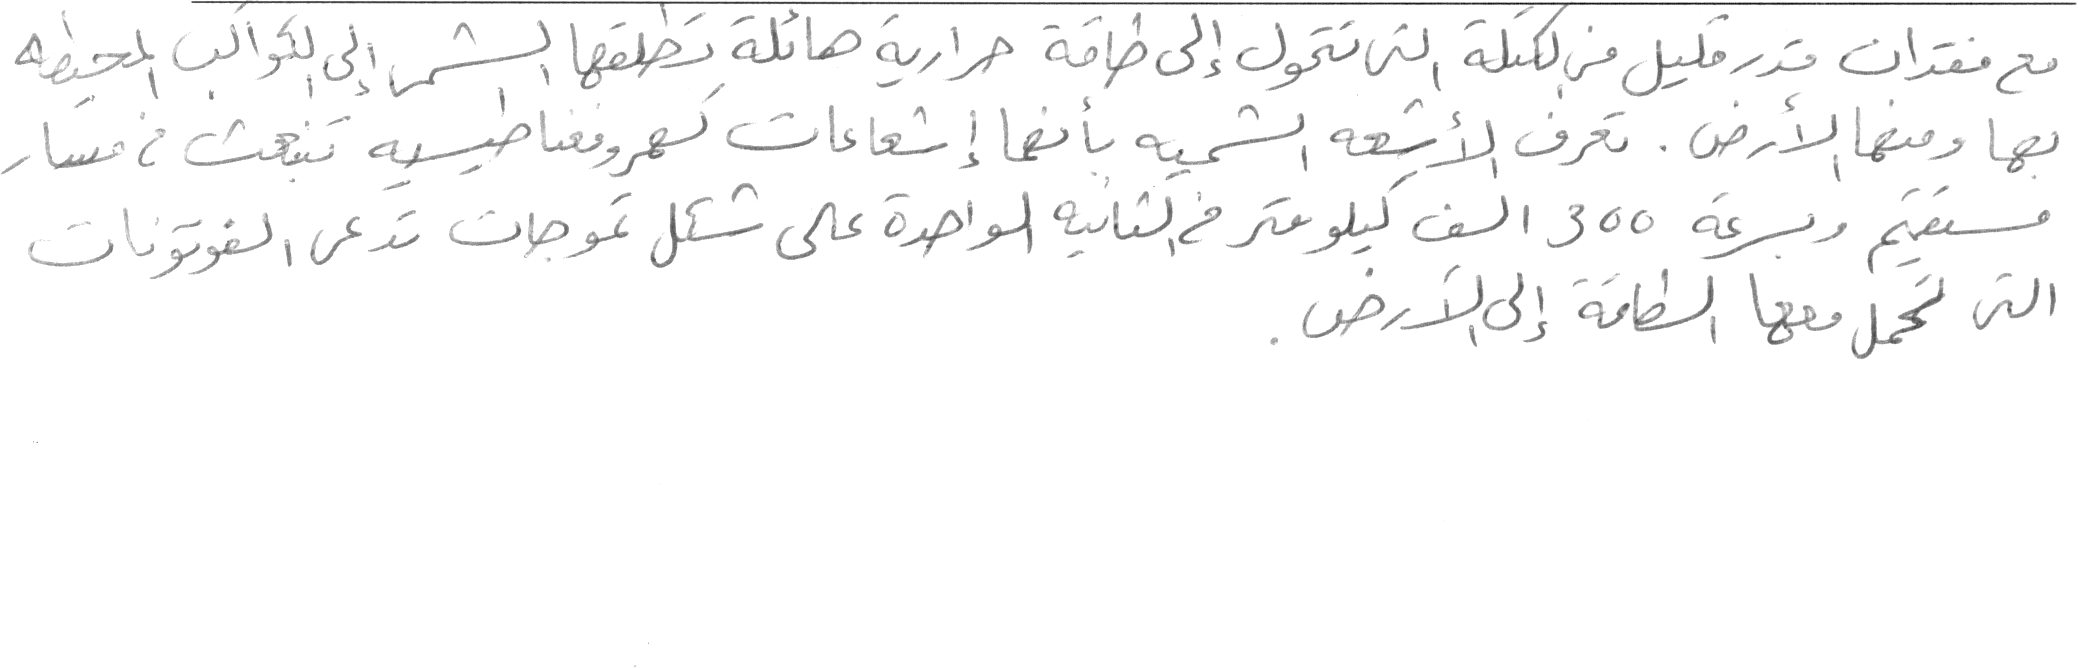 مع فقدان قدر قليل من الكتلة التي تتحول إلى طاقة حرارية هائلة تطلقها الشمس إلى الكواكب المحيطه
بها ومنها الأرض . تعرف الأشعه الشمسيه بأنها إشعاعات كهرومغناطيسيه تنبعث في مسار
مستقيم وبسرعة 300 الف كيلو متر في الثانيه الواحدة على شكل تموجات تدعى الفوتونات
التي تحمل معها الطاقة إلى الأرض .